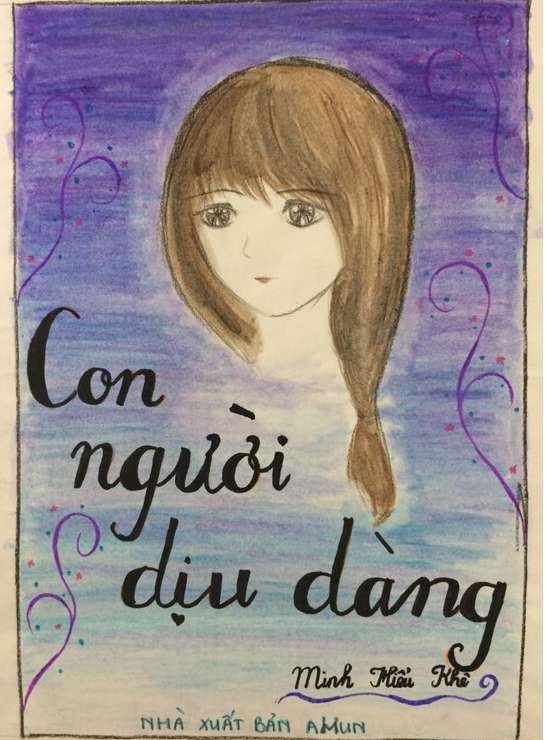 Con
người
dịu dàng
Minh Hiểu Khê
NHÀ XUẤT BẢN AMUN